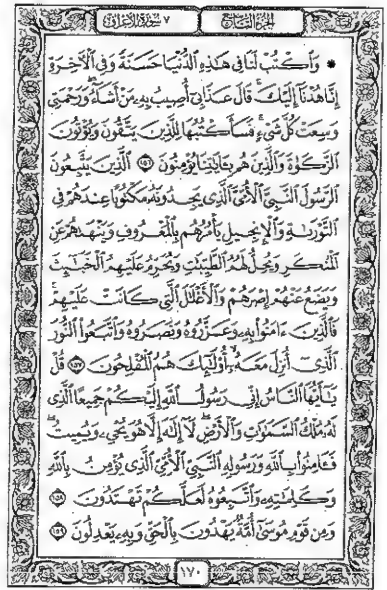 الجزء التاسع ٧ سورة الأعراف
۞ وَٱكۡتُبۡ لَنَا فِي هَٰذِهِ ٱلدُّنۡيَا حَسَنَةٗ وَفِي ٱلۡأٓخِرَةِ
إِنَّا هُدۡنَآ إِلَيۡكَۚ قَالَ عَذَابِيٓ أُصِيبُ بِهِۦ مَنۡ أَشَآءُۖ وَرَحۡمَتِي
وَسِعَتۡ كُلَّ شَيۡءٖۚ فَسَأَكۡتُبُهَا لِلَّذِينَ يَتَّقُونَ وَيُؤۡتُونَ
ٱلزَّكَوٰةَ وَٱلَّذِينَ هُم بِـَٔايَٰتِنَا يُؤۡمِنُونَ ١٥٦ ٱلَّذِينَ يَتَّبِعُونَ
ٱلرَّسُولَ ٱلنَّبِيَّ ٱلۡأُمِّيَّ ٱلَّذِي يَجِدُونَهُۥ مَكۡتُوبًا عِندَهُمۡ فِي
ٱلتَّوۡرَىٰةِ وَٱلۡإِنجِيلِ يَأۡمُرُهُم بِٱلۡمَعۡرُوفِ وَيَنۡهَىٰهُمۡ عَنِ
ٱلۡمُنكَرِ وَيُحِلُّ لَهُمُ ٱلطَّيِّبَٰتِ وَيُحَرِّمُ عَلَيۡهِمُ ٱلۡخَبَٰٓئِثَ
وَيَضَعُ عَنۡهُمۡ إِصۡرَهُمۡ وَٱلۡأَغۡلَٰلَ ٱلَّتِي كَانَتۡ عَلَيۡهِمۡۚ
فَٱلَّذِينَ ءَامَنُواْ بِهِۦ وَعَزَّرُوهُ وَنَصَرُوهُ وَٱتَّبَعُواْ ٱلنُّورَ
ٱلَّذِيٓ أُنزِلَ مَعَهُۥٓ أُوْلَٰٓئِكَ هُمُ ٱلۡمُفۡلِحُونَ ١٥٧ قُلۡ
يَٰٓأَيُّهَا ٱلنَّاسُ إِنِّي رَسُولُ ٱللَّهِ إِلَيۡكُمۡ جَمِيعًا ٱلَّذِي
لَهُۥ مُلۡكُ ٱلسَّمَٰوَٰتِ وَٱلۡأَرۡضِۖ لَآ إِلَٰهَ إِلَّا هُوَ يُحۡيِۦ وَيُمِيتُۖ
فَـَٔامِنُواْ بِٱللَّهِ وَرَسُولِهِ ٱلنَّبِيِّ ٱلۡأُمِّيِّ ٱلَّذِي يُؤۡمِنُ بِٱللَّهِ
وَكَلِمَٰتِهِۦ وَٱتَّبِعُوهُ لَعَلَّكُمۡ تَهۡتَدُونَ ١٥٨
وَمِن قَوۡمِ مُوسَىٰٓ أُمَّةٞ يَهۡدُونَ بِٱلۡحَقِّ وَبِهِۦ يَعۡدِلُونَ ١٥٩
١٧٠